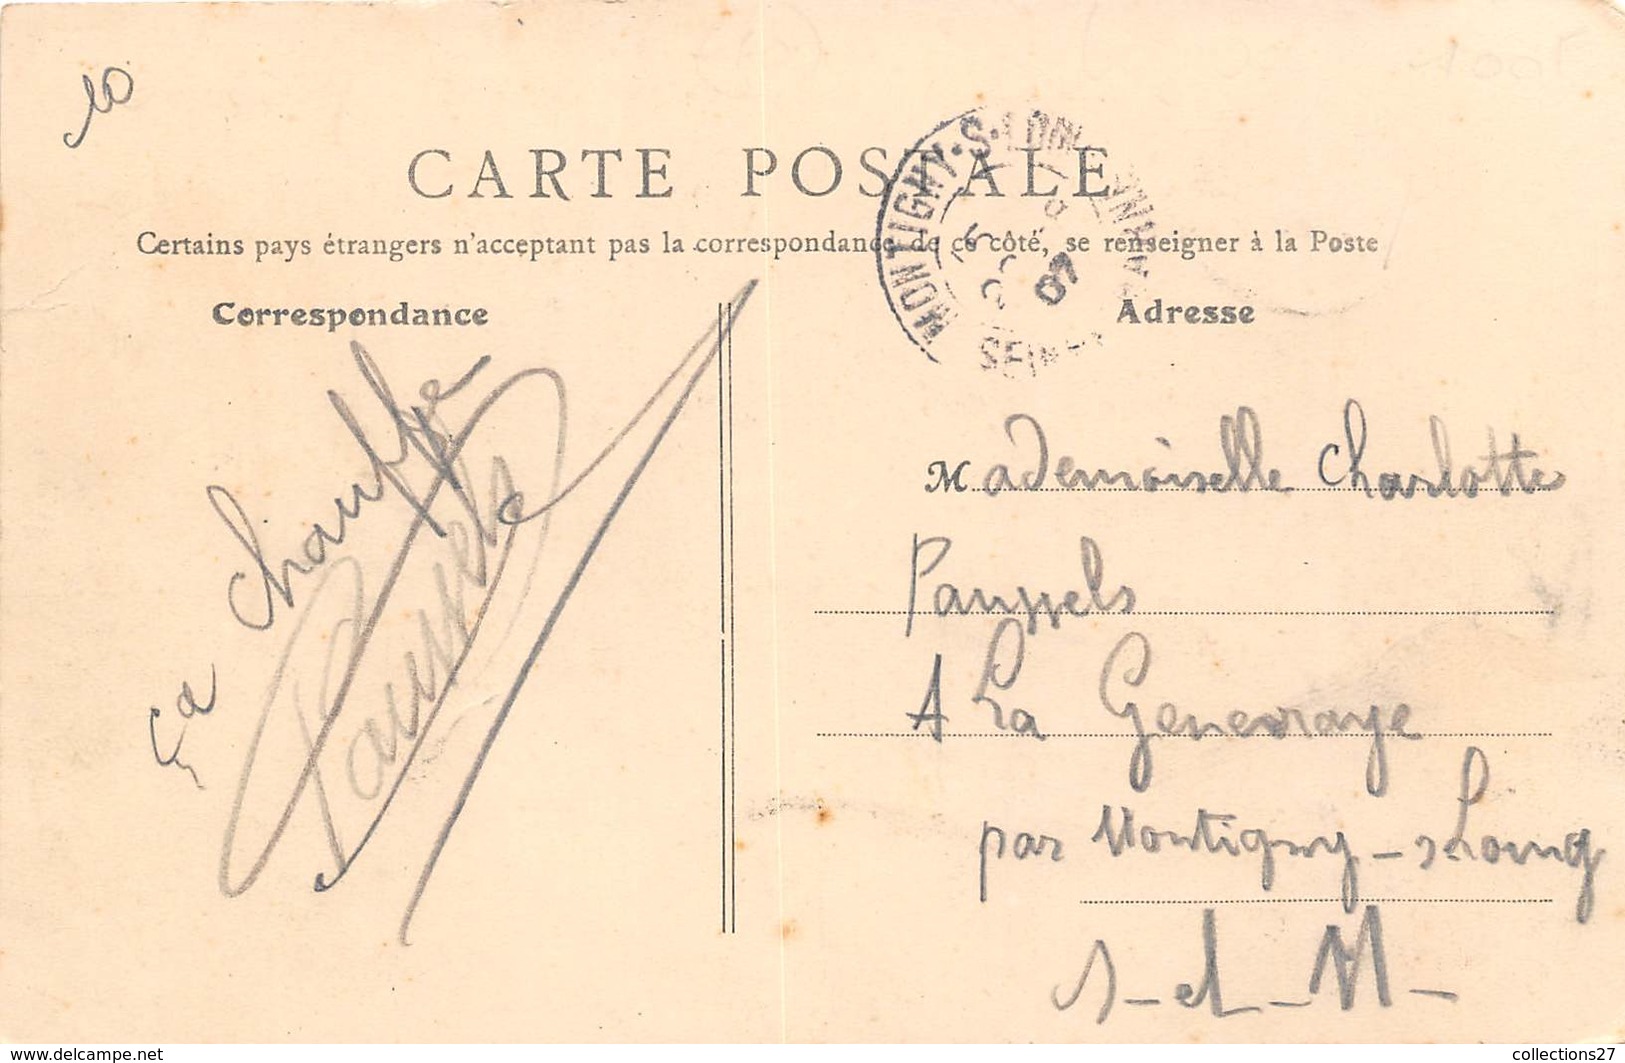 10
CARTE POSTALE
Certains pays étrangers n'acceptant pas la correspondance de ce côté, se renseigner à la Poste
Correspondance
Adresse
MONTIGNY-S-LOING
SEINE
07
Ça chauffe
Paussels
Mademoiselle Charlotte
Paussels
A La Genevraye
par Montigny-s-Loing
S-et-M-
www.delcampe.net
collections27